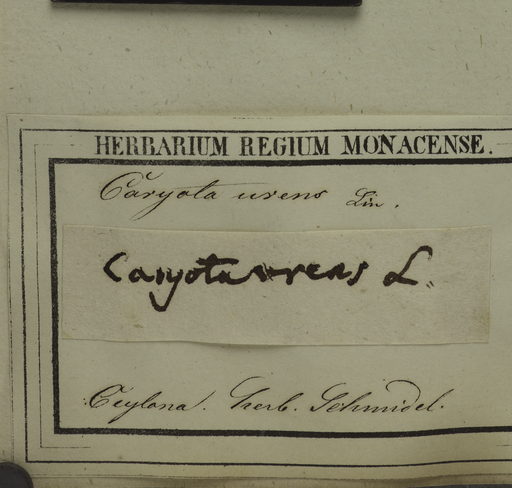 HERBARIUM REGIUM MONACENSE.
Caryota urens Lin.
Caryota urens L.
Ceylona. Herb. Schmidel.